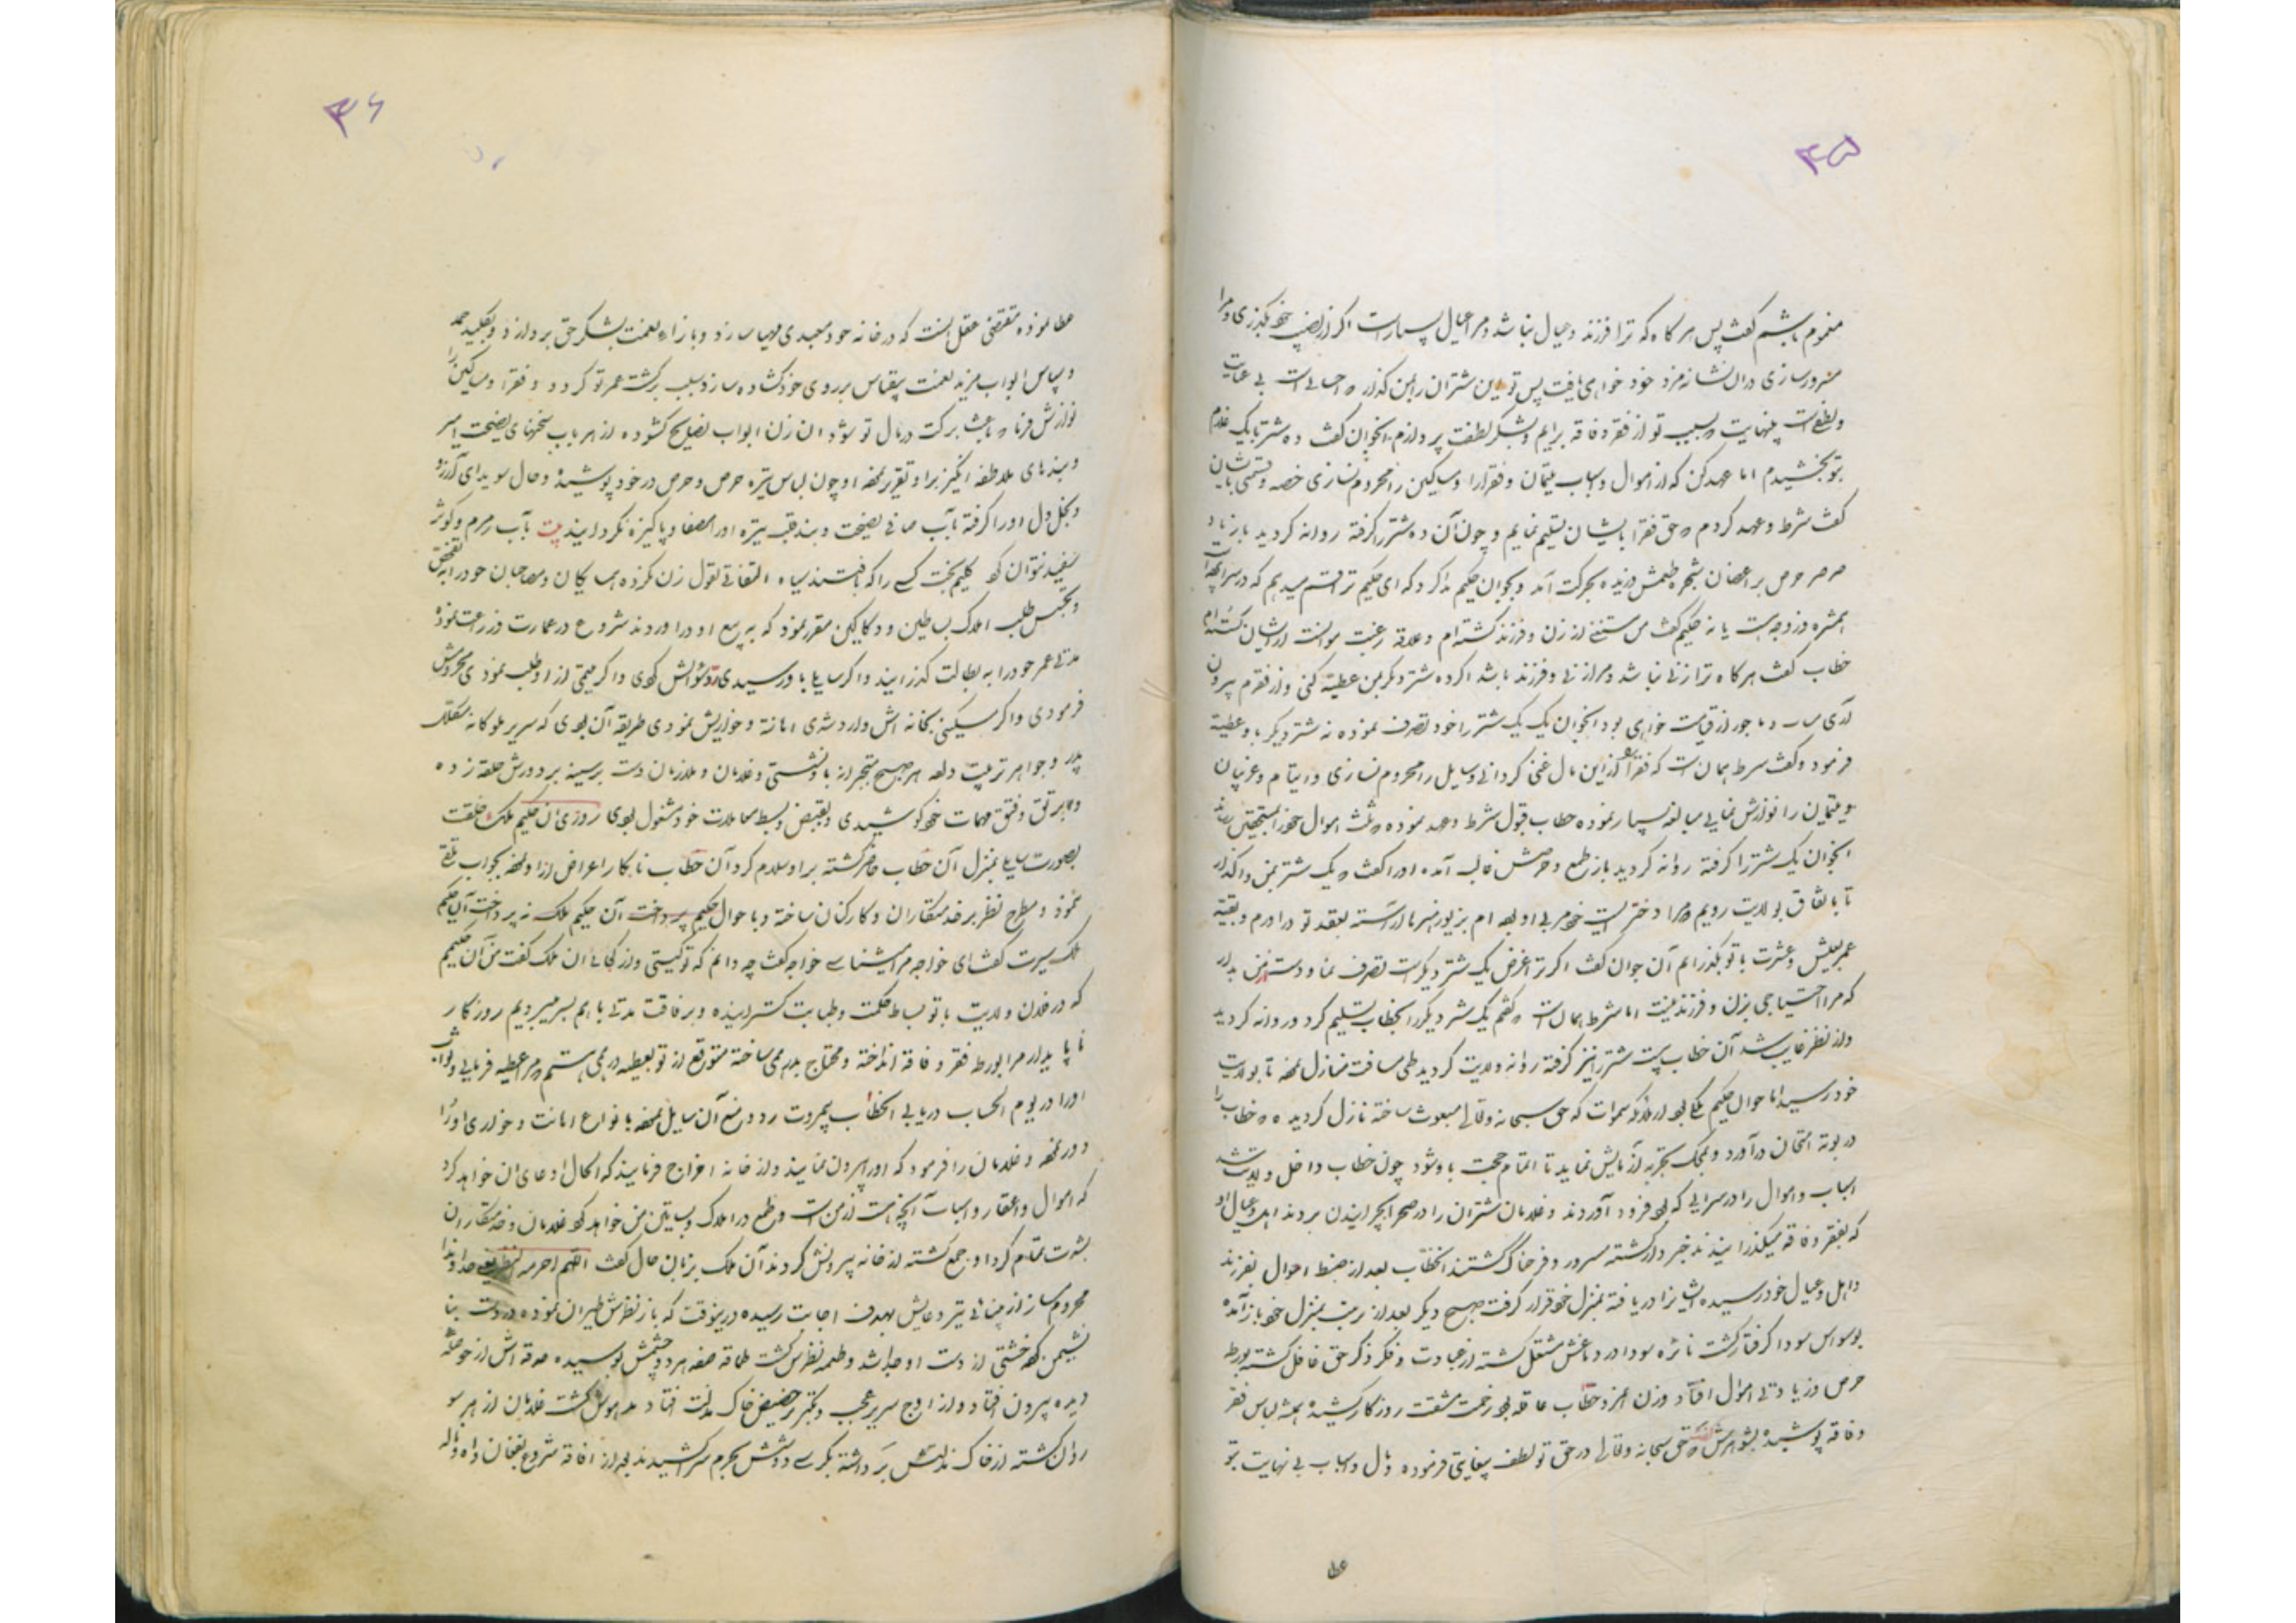 ۴۵
مغموم باشم گفت پس هر گاه که ترا فرزند و عیال نباشد و مرا عیال بسیار است اگر از نصیب خود بگذری و مرا
مسرور سازی در آن نشانه مزد خود خواهی یافت پس تو این شتران را بمن گذار که احسانی است بی غایت
و لطفیست بینهایت که بسبب تو از فقر و فاقه برایم و بشکر لطفت پردازم آنجوان گفت ده شتر با یک غلام
بتو بخشیدم اما عهد کن که از اموال و اسباب یتیمان و فقرا را و مساکین را محروم نسازی حصه و قسمی باایشان
گفت شرط و عهد کردم که حق فقرا بایشان تسلیم نمایم و چون آن ده شتر را گرفته روانه گردید باز باد
صرصر حرص بر اغصان شجره طمعش وزیده بحرکت آمد و بجوان حکیم ندا کرد که ای حکیم ترا قسم میدهم که در سرا
همشیره و زوجه هست یا نه حکیم گفت من مستغنی از زن و فرزند گشته ام و علاقه رغبت موانست از ایشان
خطاب گفت هر گاه ترا زنی نباشد و مرا زنی و فرزند باشد اگر ده شتر دیگر بمن عطیه کنی و از فقرم بیرون
آری مثاب و ماجور از قیامت خواهی بود آنجوان یک یک شتر را خود تصرف نموده نه شتر دیگر باو عطیه
فرمود و گفت شرط همان است که فقرا را از این مال غنی گردانی و سایل را محروم نسازی و ایتام و عریان
و یتیمان را نوازش نمایی مبالغه بسیار نموده خطاب قبول شرط و عهد نموده که ثلث اموال خود را بمستحقین
آنجوان یک شتر را گرفته روانه گردید باز طمع و حرصش غالب آمده او را گفت که یک شتر بمن واگذار
تا باتفاق بولایت رویم و مرا دختریست خود مربی او بوده ام بزیور هنرها آراسته بعقد تو در آورم و بقیه
عمر بعیش و عشرت با تو بگذرانم آن جوان گفت اگر ترا غرض یک شتر دیگر است تصرف نما و دست از من بدار
که مرا احتیاجی بزن و فرزند نیست اما شرط همان است که گفتم یک شتر دیگر را بخطاب تسلیم کرد و روانه گردید
و از نظر غایب شد آن خطاب بیست شتر را نیز گرفته روانه ولایت گردید طی مسافت منازل نموده تا بولایت
خود رسید اما جوان حکیم ملکی بود از ملائکه سموات که حق سبحانه و تعالی مبعوث ساخته نازل گردید که خطاب را
در بوته امتحان در آورد و بمحک تجربه آزمایش نماید تا اتمام حجت باو شود چون خطاب داخل ولایت شد
اسباب و اموال را در سرایی که بود فرود آوردند و غلامان شتران را در صحرا بچرانیدن بردند اهل و عیال او
که بفقر و فاقه میگذرانیدند خبردار گشته مسرور و فرحناک گشتند آنخطاب بعد از ضبط اموال بفرزند
و اهل و عیال خود رسیده ایشانرا دریافته بمنزل خود قرار گرفت صبح دیگر بعد از رفتن بمنزل خود باز آمده
بوسواس سودا گرفتار گشت نایره سودا در دماغش مشتعل گشته از عبادت و فکر و ذکر حق غافل گشته بورطه
حرص و زیادتی اموال افتاد و زن آنمرد خطاب عاقله بود زحمت مشقت روزگار کشیده همیشه لباس فقر
و فاقه پوشیده بشوهرش گفت که حق سبحانه و تعالی در حق تو لطف بیغایتی فرموده و مال و اسباب بی نهایت بتو
عطا
۴۶
عطا نموده مقتضی عقل آنست که در خانه خود معبدی مهیا سازد و بازاء نعمت بشکر حق پردازد و بکلید حمد
و سپاس ابواب مزید نعمت بیقیاس بر روی خود گشاده سازد و سبب برگشت عمر تو گردد و فقرا و مساکین را
نوازش فرما که باعث برکت در مال تو شود آن زن ابواب نصایح گشوده از هر باب سخنهای نصیحت آمیز
و پندهای ملاطفه انگیز براو تقریر نموده او چون لباس تیره حرص و حرص در خود پوشیده و خال سویدای آرزو
و بخل دل او را گرفته بآب صافی نصیحت و پند قلب تیره او را مصفا و پاکیزه نگردانید بیت بآب زمزم و کوثر
سفید نتوان کرد گلیم بخت کسی را که بافتند سیاه التفاتی بقول زن نکرده همسایگان و مصاحبان خود را به تفحص
و تجسس طلب املاک بساطین و دکاکین مقرر نمود که به بیع او در آوردند شروع در عمارت و زراعت نموده
مدتی عمر خود را به بطالت گذرانید و اگر سایلی باو رسیدی ردّ سوالش کردی و اگر یتیمی از او طلب نمودی محروش
فرمودی و اگر مسکینی بخانه اش وارد شدی اهانة و خواریش نمودی طریقه آن بودی که سریر ملوکانه مکلل
بدر و جواهر ترتیب داده هر صبح متجبر از باو نشستی و غلامان و ملازمان دست بر سینه بر دورش حلقه زده
و بر رتق و فتق مهمات خود کوشیدی و بقبض و بسط معاملات خود مشغول بودی روزی آن حکیم ملک خلقت
بصورت سایلی بمنزل آن خطاب حاضر گشته بر او سلام کرد آن خطاب نابکار اعراض از او نموده بجواب ملتفت
نمود و مطرح نظر بر خدمتکاران و کارکنان ساخته و باحوال حکیم پرداخت آن حکیم ملک نپرداخت آن حکیم
ملک سیرت گفت ای خواجه مرا میشناسی خواجه گفت چه دانم که تو کیستی و از کجایی آن ملک گفت من آن حکیم
که در فلان ولایت با تو بساط حکمت و طبابت گسترانیده و برفاقت مدتی با هم بسر میبردیم روزگار
ناپایدار مرا بورطه فقر و فاقه انداخته و محتاج بدرهمی ساخته متوقع از تو بعطیه درهمی هستم که مرا عطیه فرمایی و ثواب
او را در یوم الحساب دریابی آنخطاب بیمروت رد و منع آن سایل نموده بانواع اهانت و خواری او را
دور نموده و غلامان را فرمود که او را بیرون نمایند و از خانه اخراج فرمایند که الحال ادعای آن خواهد کرد
که اموال و عقار و اسباب آنچه هست از من است و طمع در املاک و بساتین من خواهد کرد غلامان و خدمتکاران
بشدت تمام کرد او جمع گشته از خانه بیرونش کردند آن ملک بزبان حال گفت اللهم احرمه لنظره یعنی خداوندا
محروم ساز از بینائی تیر دعایش بهدف اجابت رسیده درینوقت که باز نظرش طیران نموده در دست بنا
نشیمن کرده خشتی از دست او جدا شد و طعمه نظرش گشت طاقه صفه هر دو چشمش بوسیده حدقه اش از حوصله
دیده بیرون افتاد و از اوج سریر عجب و تکبر بر حضیض خاک مذلت افتاد مدهوش گشت غلامان از هر سو
روان گشته از خاک مذلتش برداشته بکرسی دوشش بحرم سرا کشیدند بعد از افاقه شروع بفغان و آه و ناله